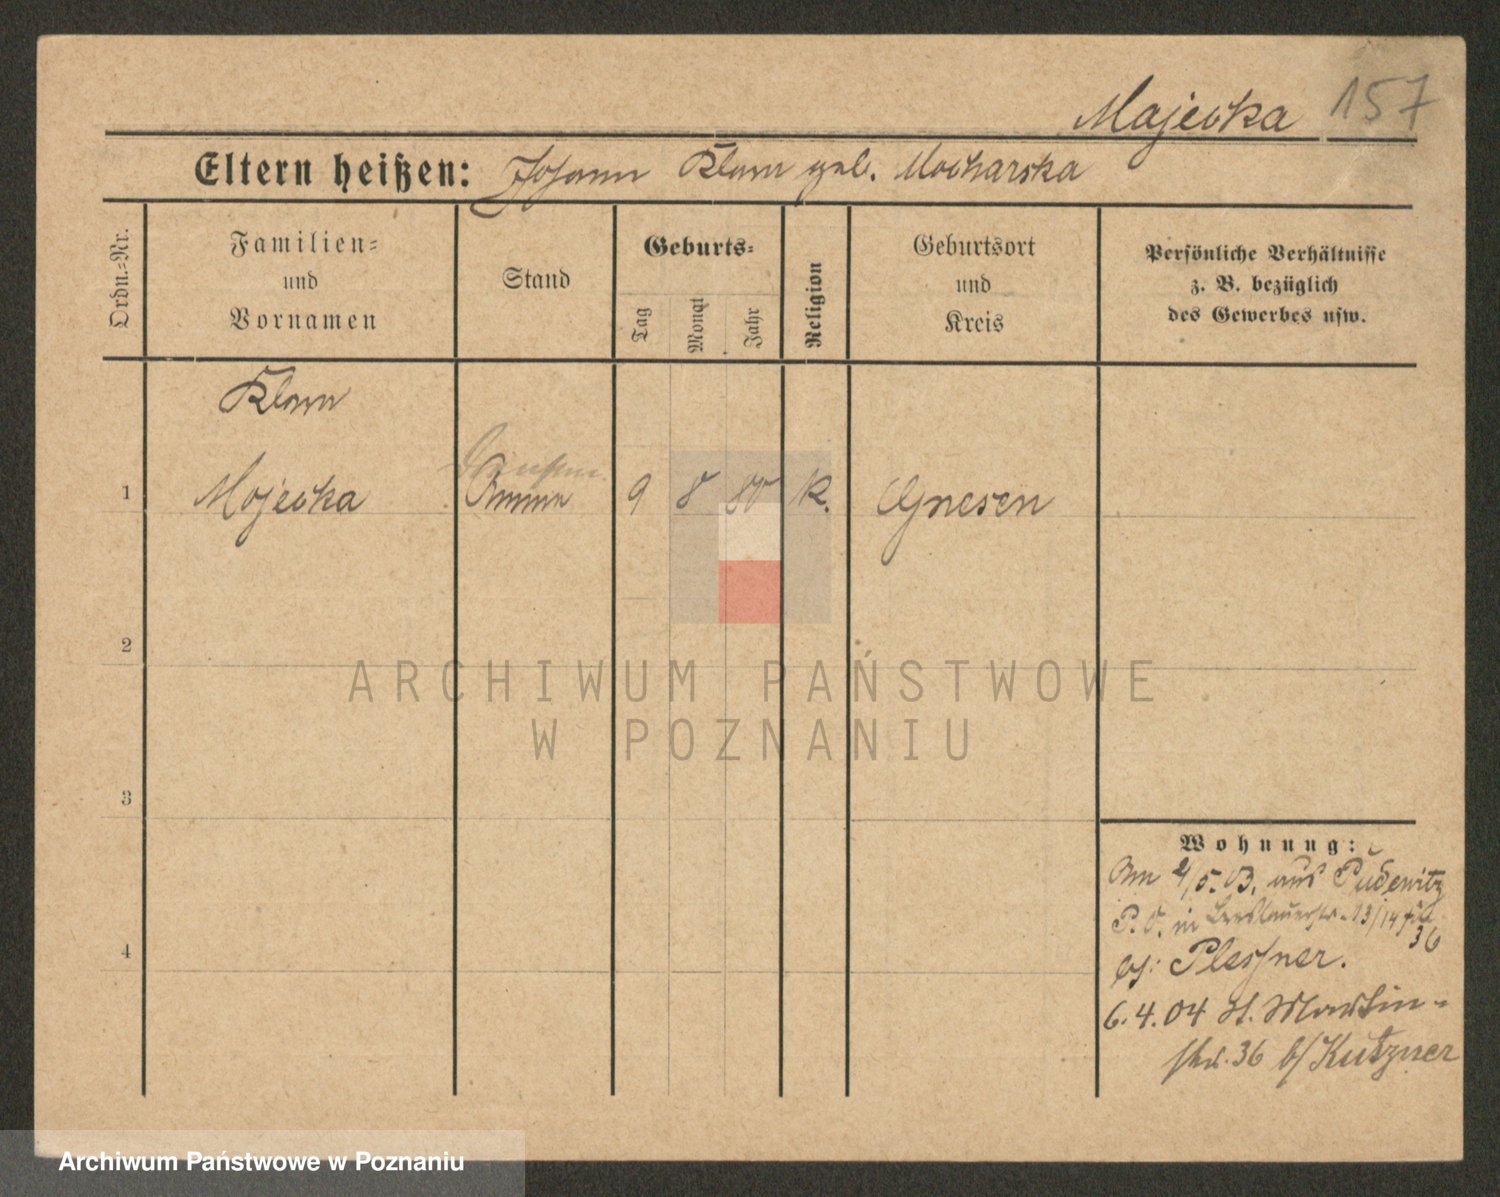 Majewska 157
Eltern heißen: Johann Klara geb. Mocharska
Ordn.-Nr.
Familien-
und
Vornamen
Stand
Geburts-
Tag
Monat
Jahr
Religion
Geburtsort
und
Kreis
Persönliche Verhältnisse
z. B. bezüglich
des Gewerbes usw.
Klara
1 Majewska Amme 9 8 80 K. Gnesen
2
3
4
Wohnung:
Am 2/5.03. aus Pudewitz
P. O. in Breslauerstr. 13/14
36
bei: Plessner.
6.4.04 St. Martin-
str. 36 b/ Kutzner
ARCHIWUM PAŃSTWOWE
W POZNANIU
Archiwum Państwowe w Poznaniu